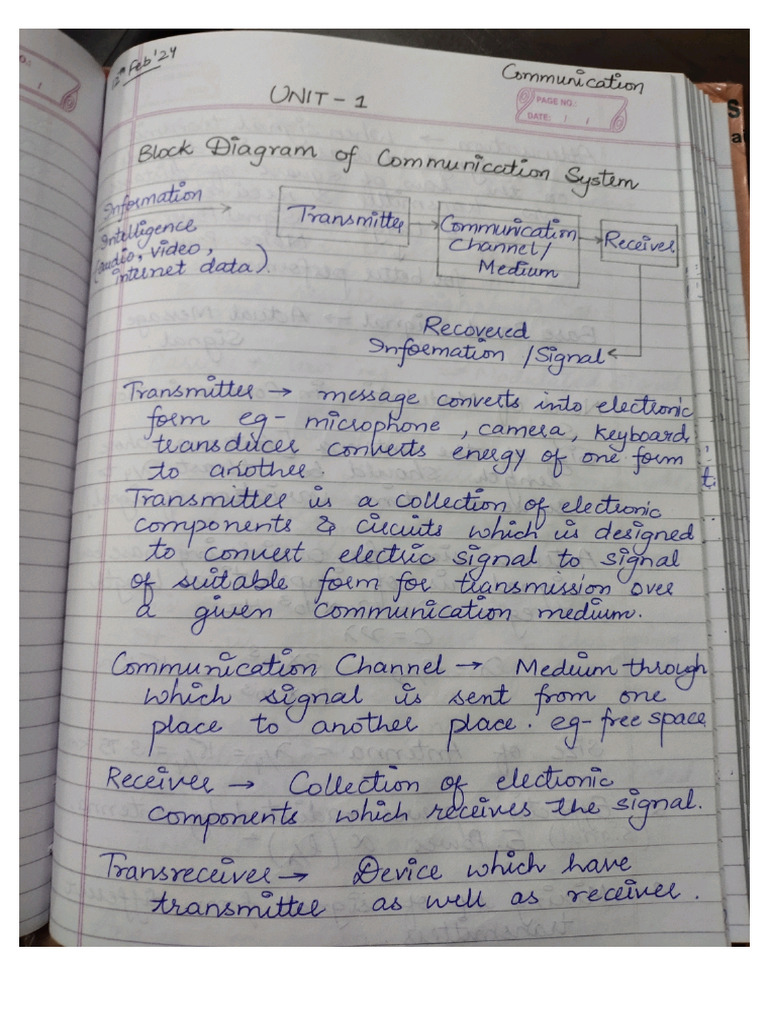 12th Feb '24
Communication
UNIT - 1
PAGE NO.:
DATE: / /
Block Diagram of Communication System
Information
Intelligence
(audio, video,
internet data).
Transmitter
Communication
Channel/
Medium
Receiver
Recovered
Information / Signal
Transmitter → message converts into electronic
form eg - microphone , camera, keyboard,
transducer converts energy of one form
to another.
Transmitter is a collection of electronic
components & circuits which is designed
to convert electric signal to signal
of suitable form for transmission over
a given communication medium.
Communication Channel → Medium through
which signal is sent from one
place to another place. eg - free space
Receiver → Collection of electronic
components which receives the signal.
Transreceiver → Device which have
transmitter as well as receiver.